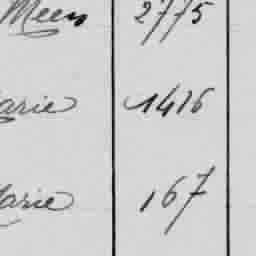 Meen 2775
arie 1416
arie 167